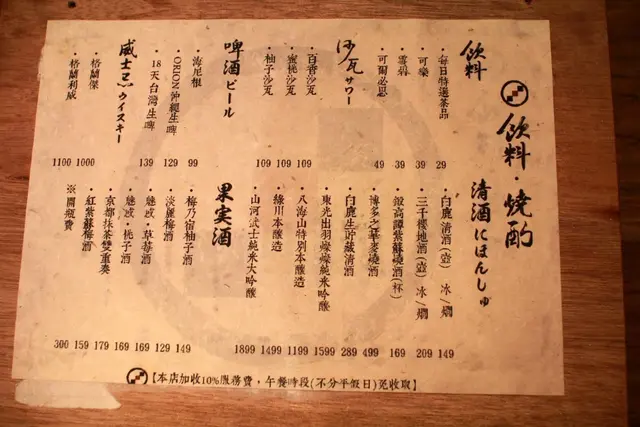 飲料・燒酌
飲料
・每日特選茶品 29
・可樂 39
・雪碧 39
・可爾必思 49
沙瓦サワー
・百香沙瓦 109
・蜜桃沙瓦 109
・柚子沙瓦 109
啤酒ビール
・海尼根 99
・ORION沖繩生啤 129
・18天台灣生啤 139
威士忌ウイスキー
・格蘭傑 1000
・格蘭利威 1100
清酒にほんしゅ
・白鹿清酒(壺) 冰/燗 149
・三千櫻地酒(壺) 冰/燗 209
・鍛高譚紫蘇燒酒(杯) 169
・博多之華麥燒酒 499
・白鹿生貯藏清酒 289
・東光出羽燦燦純米吟釀 1599
・八海山特別本釀造 1199
・綠川本釀造 1499
・山河武士純米大吟釀 1899
果実酒
・梅乃宿柚子酒 149
・淡麗梅酒 129
・魅惑．草莓酒 169
・魅惑．桃子酒 169
・京都抹茶雙重奏 179
・紅紫蘇梅酒 159
※開瓶費 300
【本店加收10%服務費，午餐時段(不分平假日)免收取】